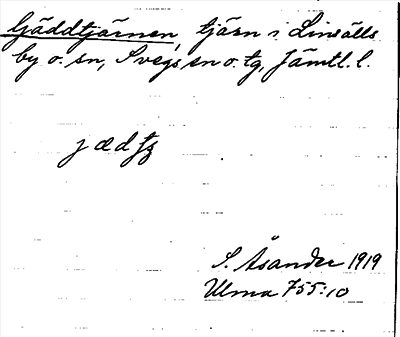 Gäddtjärnen, tjärn i Linsälls
by o. sn, Svegs sn o. tg, Jämtl. l.
S. Åsander 1919
Ulma 755:10